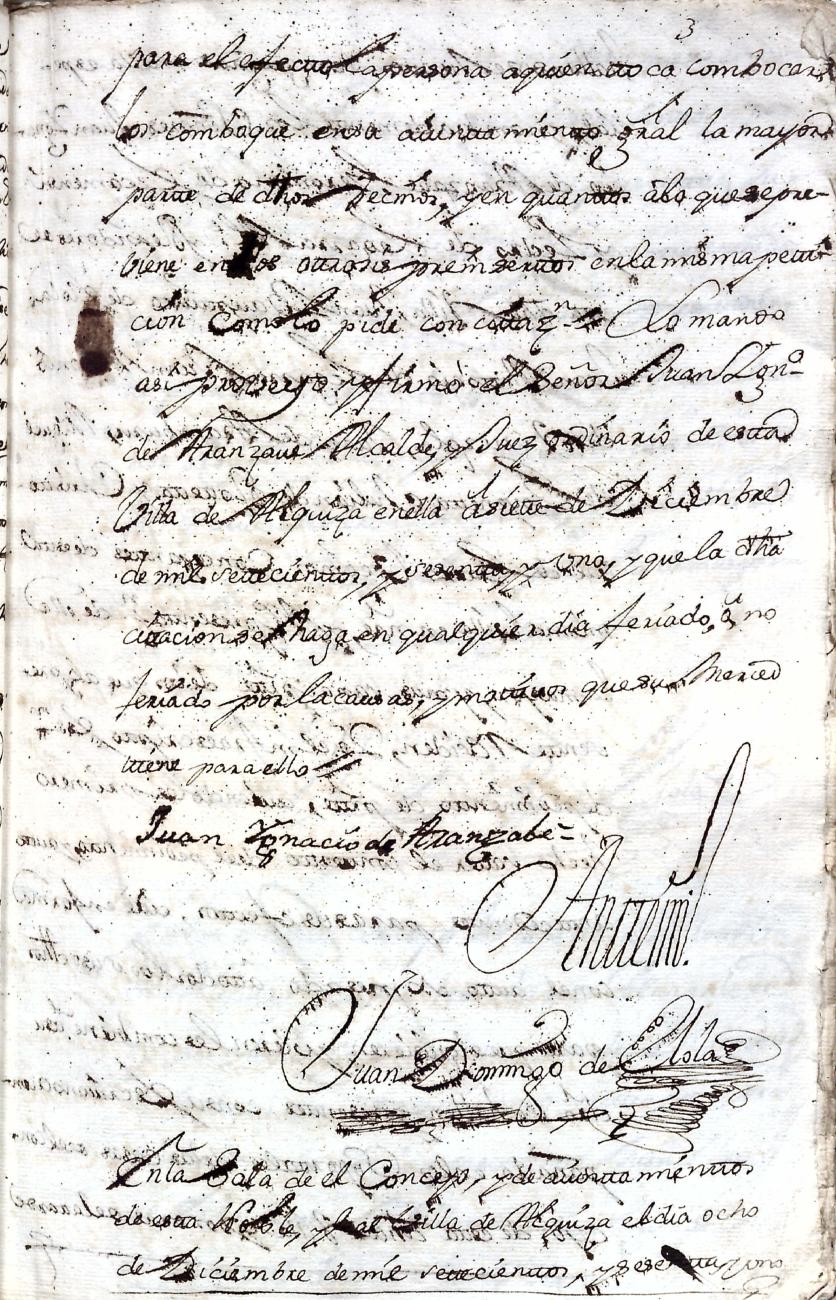 3
para el efecto la persona a quien ttoca combocar
los comboque en su aiunttamientto gral la mayor
partte de dhos Vecinos, y en quanttos a lo que se pre-
biene en los ottrosis preinserttos en la misma petti-
cion como lo pide con cittaz.n Lo mando
asi proveyo y firmo el Señor Juan Ign.o
de Aranzave Alcalde, y Juez ordinario de estta
Villa de Alquiza en ella a siette de Diciembre
de mil settecienttos, y sesentta y Uno, y que la dha
cittacion se haga en qualquier dia feriado, q no
feriado por la causas, y mottivos que su Merced
ttiene para ello
Juan Ygnacio de Aranzabe
Anttemi.
Juan Domingo de
En la Sala de el Concejo, y de aiunttamienttos
de estta Noble, y Leal Villa de Alquiza el dia ocho
de Diciembre de mil settecienttos, y sesentta y uno